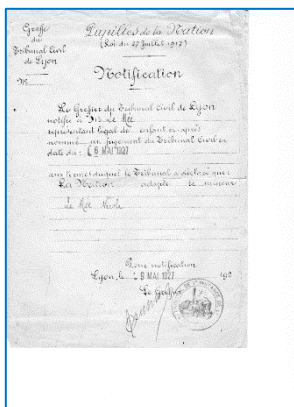 Greffe
du
Tribunal Civil
de Lyon
N°
Pupilles de la Nation
(Loi du 27 Juillet 1917)
Notification
Le Greffier du Tribunal Civil de Lyon
notifie à M. Le Mée
représentant légal de enfant ci-après
nommé un jugement du Tribunal Civil en
date du : 6 MAI 1927
aux termes duquel le Tribunal a déclaré que :
La Nation adopte le mineur
Le Mée Nicole
Pour notification
Lyon, le 9 MAI 1927 192
Le Greffier